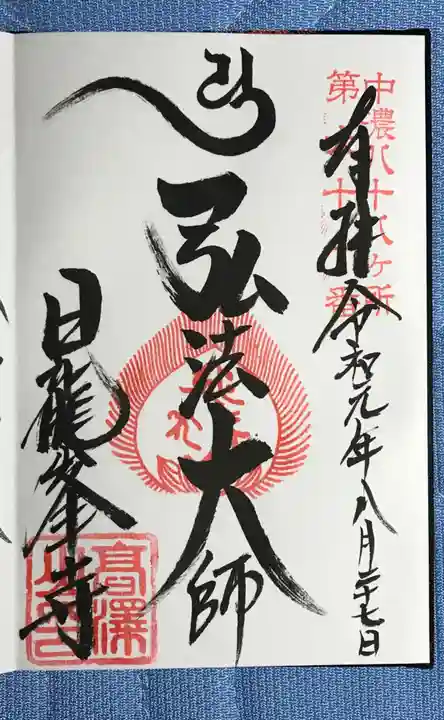 中濃八十八ヶ所
奉拝
令和元年八月二十七日
弘法大師
日龍峯寺
高澤